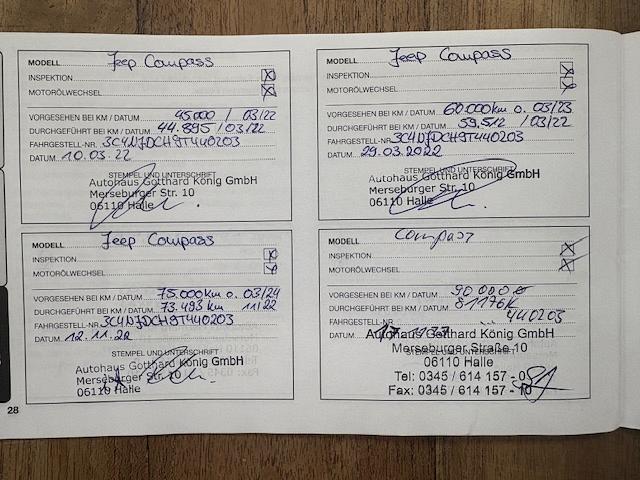 MODELL Jeep Compass
INSPEKTION
MOTORÖLWECHSEL
VORGESEHEN BEI KM / DATUM 45.000 / 03/22
DURCHGEFÜHRT BEI KM / DATUM 44.895 / 03/22
FAHRGESTELL-NR. 3C4NJDCH9JT440203
DATUM 10.03.22
STEMPEL UND UNTERSCHRIFT
Autohaus Gotthard König GmbH
Merseburger Str. 10
06110 Halle
MODELL Jeep Compass
INSPEKTION
MOTORÖLWECHSEL
VORGESEHEN BEI KM / DATUM 60.000km o. 03/23
DURCHGEFÜHRT BEI KM / DATUM 59.512 / 03/22
FAHRGESTELL-NR. 3C4NJDCH9JT440203
DATUM 29.03.2022
STEMPEL UND UNTERSCHRIFT
Autohaus Gotthard König GmbH
Merseburger Str. 10
06110 Halle
MODELL Jeep Compass
INSPEKTION
MOTORÖLWECHSEL
VORGESEHEN BEI KM / DATUM 75.000km o. 03/24
DURCHGEFÜHRT BEI KM / DATUM 73.493 km 11/22
FAHRGESTELL-NR. 3C4NJDCH9JT440203
DATUM 12.11.22
STEMPEL UND UNTERSCHRIFT
Autohaus Gotthard König GmbH
Merseburger Str. 10
06110 Halle
MODELL Compass
INSPEKTION
MOTORÖLWECHSEL
VORGESEHEN BEI KM / DATUM 90000
DURCHGEFÜHRT BEI KM / DATUM 81176K
FAHRGESTELL-NR. 440203
DATUM
Autohaus Gotthard König GmbH
Merseburger Straße 10
STEMPEL UND UNTERSCHRIFT
06110 Halle
Tel: 0345 / 614 157 - 0
Fax: 0345 / 614 157 - 10
28